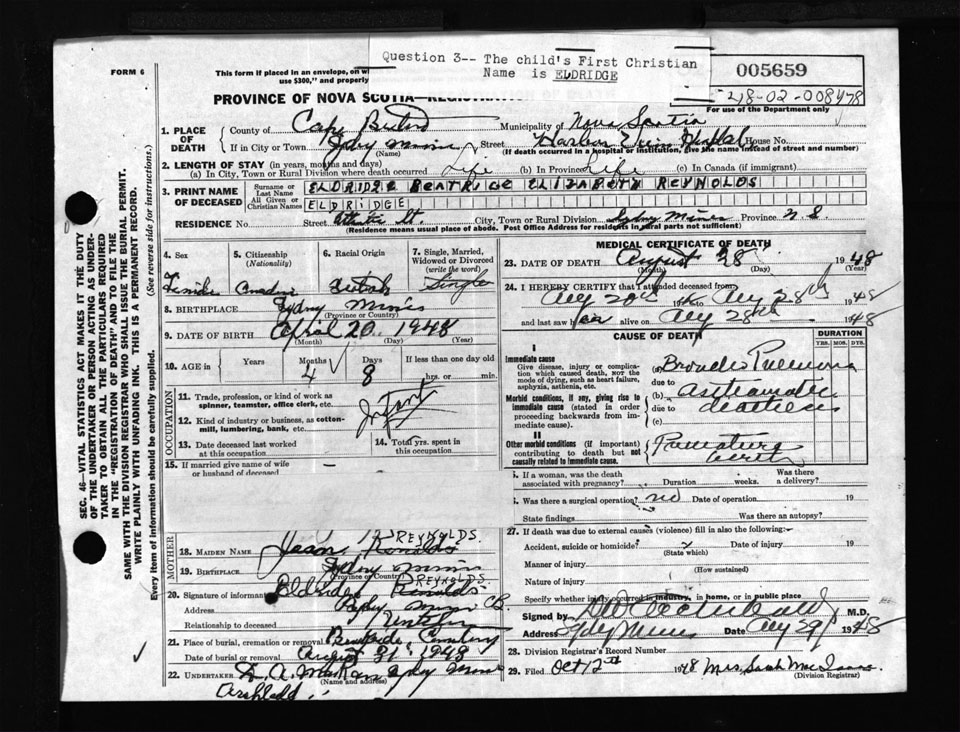 Question 3-- The child's First Christian
Name is ELDRIDGE
FORM 6
This form if placed in an envelope, on w
use $300," and properly
005659
48-02-008478
For use of the Department only
PROVINCE OF NOVA SCOTIA—REGISTRATION
1. PLACE OF DEATH
County of Cape Breton Municipality of Nova Scotia
If in City or Town Sydney Mines (Name) Street Harbor View Hospital House No.
(If death occurred in a hospital or institution, give its name instead of street and number)
2. LENGTH OF STAY (in years, months and days)
(a) In City, Town or Rural Division where death occurred Life (b) In Province Life (c) In Canada (if immigrant)
3. PRINT NAME OF DECEASED
Surname or Last Name ELDRIDGE BEATRICE ELIZABETH REYNOLDS
All Given or Christian Names ELDRIDGE
RESIDENCE No. Street Atlantic St. City, Town or Rural Division Sydney Mines Province N S
(Residence means usual place of abode. Post Office Address for residents in rural parts not sufficient)
4. Sex Female
5. Citizenship (Nationality) Canadian
6. Racial Origin
7. Single, Married, Widowed or Divorced (write the word) Single
8. BIRTHPLACE Sydney Mines
(Province or Country)
9. DATE OF BIRTH April 20 1948
(Month) (Day) (Year)
10. AGE in Years Months 4 Days 8 If less than one day old hrs. or min.
OCCUPATION
11. Trade, profession, or kind of work as spinner, teamster, office clerk, etc. Infant
12. Kind of industry or business, as cotton-mill, lumbering, bank, etc.
13. Date deceased last worked at this occupation
14. Total yrs. spent in this occupation
15. If married give name of wife or husband of deceased
MOTHER
18. MAIDEN NAME REYNOLDS.
19. BIRTHPLACE Sydney Mines
(Province or Country)
20. Signature of informant REYNOLDS.
Address Sydney Mines CB
Relationship to deceased
21. Place of burial, cremation or removal Cemetery
Date of burial or removal August 31st 1948
22. UNDERTAKER Sydney Mines
(Name and address)
MEDICAL CERTIFICATE OF DEATH
23. DATE OF DEATH August 28 1948
(Month) (Day) (Year)
24. I HEREBY CERTIFY that I attended deceased from
Aug 20th to Aug 28th 1948
and last saw her alive on Aug 28th 1948
CAUSE OF DEATH
DURATION
YRS. MOS. DYS.
I
Immediate cause
Give disease, injury or complication which caused death, NOT the mode of dying, such as heart failure, asphyxia, asthenia, etc.
(a) Broncho Pneumonia
due to
Morbid conditions, if any, giving rise to immediate cause (stated in order proceeding backwards from immediate cause).
(b)
due to
(c)
II
Other morbid conditions (if important) contributing to death but not causally related to immediate cause.
Premature birth
i. If a woman, was the death associated with pregnancy? Duration weeks. Was there a delivery?
i. Was there a surgical operation? no Date of operation 19
State findings Was there an autopsy?
27. If death was due to external causes (violence) fill in also the following:—
Accident, suicide or homicide? Date of injury 19
(State which)
Manner of injury
(How sustained)
Nature of injury
Specify whether injury occurred in industry, in home, or in public place
Signed by M.D.
Address Sydney Mines Date Aug 29 1948
28. Division Registrar's Record Number
29. Filed Oct 12th 1948 Mrs. Sarah Mac Isaac
(Division Registrar)
SEC. 46—VITAL STATISTICS ACT MAKES IT THE DUTY
OF THE UNDERTAKER OR PERSON ACTING AS UNDER-
TAKER TO OBTAIN ALL THE PARTICULARS REQUIRED
IN THE "REGISTRATION OF DEATH" AND TO FILE THE
SAME WITH THE DIVISION REGISTRAR WHO SHALL ISSUE THE BURIAL PERMIT.
WRITE PLAINLY WITH UNFADING INK. THIS IS A PERMANENT RECORD.
Every item of information should be carefully supplied. (See reverse side for instructions.)